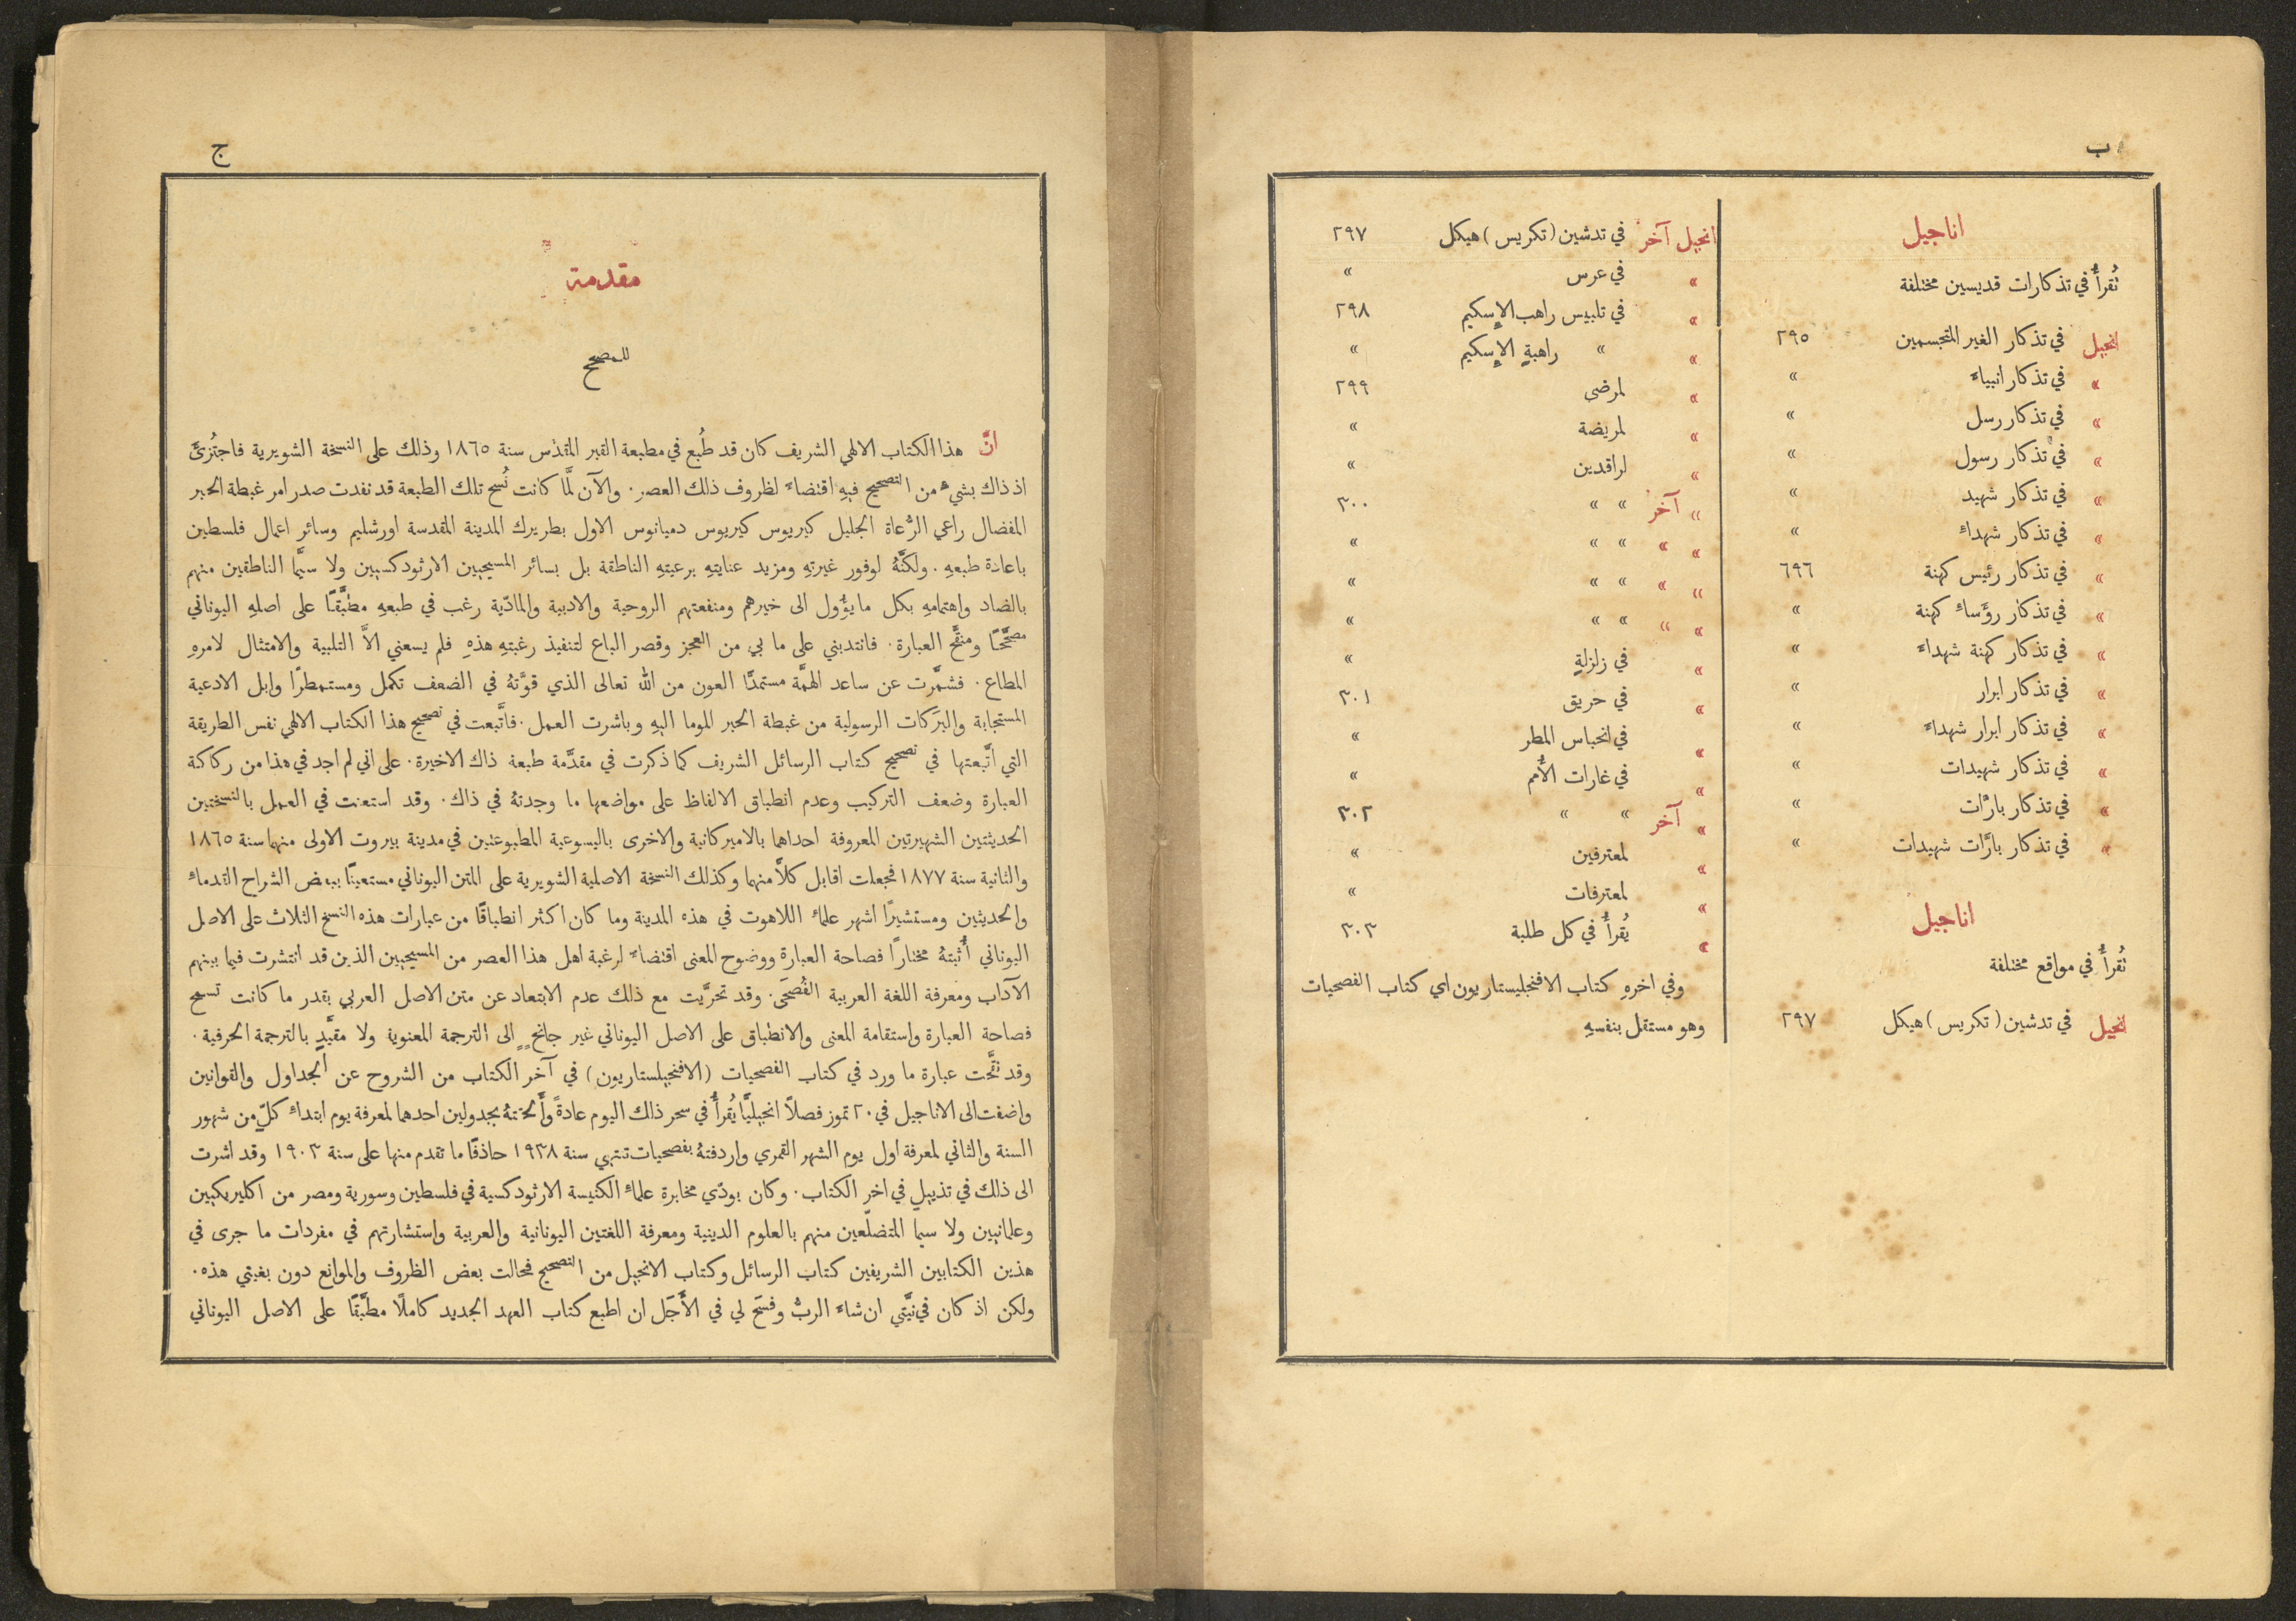 ب
اناجيل
تُقرأُ في تذكارات قديسين مختلفة
انجيل في تذكار الغير المتجسمين ٢٩٥
« في تذكار انبياءَ «
« في تذكار رسل «
« في تذكار رسول «
« في تذكار شهيد «
« في تذكار شهداءَ «
« في تذكار رئيس كهنة ٦٩٦
« في تذكار رؤَساءَ كهنة «
« في تذكار كهنة شهداءَ «
« في تذكار ابرار «
« في تذكار ابرار شهداءَ «
« في تذكار شهيدات «
« في تذكار بارَّات «
« في تذكار بارَّات شهيدات «
اناجيل
تُقرأُ في مواقع مختلفة
انجيل في تدشين (تكريس) هيكل ٢٩٧
انجيل آخر في تدشين (تكريس) هيكل ٢٩٧
« في عرس «
« في تلبيس راهب الإسكيم ٢٩٨
« « راهبةٍ الإسكيم «
« لمرضى ٢٩٩
« لمريضة «
« لراقدين «
« آخر « « ٣٠٠
« « « « «
« « « « «
« « « « «
« في زلزلةٍ «
« في حريق ٣٠١
« في انحباس المطر «
« في غارات الأُمم «
« آخر « « ٣٠٢
« لمعترفين «
« لمعترفات «
« يُقرأُ في كل طلبة ٣٠٣
وفي اخرهِ كتاب الافنجليستاريون اي كتاب الفصحيات
وهو مستقل بنفسهِ
ج
مقدمة
للمصحح
انَّ هذا الكتاب الالهي الشريف كان قد طُبع في مطبعة القبر المقدس سنة ١٨٦٥ وذلك على النسخة الشويرية فاجتُزئَ
اذ ذاك بشيءٍ من التصحيح فيهِ اقتضاءَ لظروف ذلك العصر. والآن لمَّا كانت نُسخ تلك الطبعة قد نفدت صدر امر غبطة الحبر
المفضال راعي الرُّعاة الجليل كيريوس كيريوس دميانوس الاول بطريرك المدينة المقدسة اورشليم وسائر اعمال فلسطين
باعادة طبعهِ. ولكنَّهُ لوفور غيرتهِ ومزيد عنايتهِ برعيتهِ الناطقة بل بسائر المسيحيين الارثودكسيين ولا سيَّما الناطقين منهم
بالضاد واهتمامهِ بكل ما يؤُول الى خيرهم ومنفعتهم الروحية والادبية والمادّية رغب في طبعهِ مطبَّقًا على اصلهِ اليوناني
مصحَّحًا ومنقَّح العبارة. فانتدبني على ما بي من العجز وقصر الباع لتنفيذ رغبتهِ هذهِ فلم يسعني الاَّ التلبية والامتثال لامرهِ
المطاع. فشمَّرت عن ساعد الهمَّة مستمدًّا العون من الله تعالى الذي قوَّتهُ في الضعف تكمل ومستمطرًا وابل الادعية
المستجابة والبَرَكات الرسولية من غبطة الحبر الموما اليهِ وباشرت العمل. فاتَّبعت في تصحيح هذا الكتاب الالهي نفس الطريقة
التي اتَّبعتها في تصحيح كتاب الرسائل الشريف كما ذكرت في مقدَّمة طبعة ذاك الاخيرة. على اني لم اجد في هذا من ركاكة
العبارة وضعف التركيب وعدم انطباق الالفاظ على مواضعها ما وجدتهُ في ذاك. وقد استعنت في العمل بالنسختين
الحديثتين الشهيرتين المعروفة احداهما بالاميركانية والاخرى باليسوعية المطبوعتين في مدينة بيروت الاولى منهما سنة ١٨٦٥
والثانية سنة ١٨٧٧ فجعلت اقابل كلاًّ منهما وكذلك النسخة الاصلية الشويرية على المتن اليوناني مستعينًا ببعض الشراح القدماءَ
والحديثين ومستشيرًا اشهر علماءَ اللاهوت في هذه المدينة وما كان اكثر انطباقًا من عبارات هذه النسخ الثلاث على الاصل
اليوناني أُثبتهُ مختارًا فصاحة العبارة ووضوح المعنى اقتضاءَ لرغبة اهل هذا العصر من المسيحيين الذين قد انتشرت فيما بينهم
الآداب ومعرفة اللغة العربية الفُصحَى. وقد تحرَّيت مع ذلك عدم الابتعاد عن متن الاصل العربي بقدر ما كانت تسمح
فصاحة العبارة واستقامة المعنى والانطباق على الاصل اليوناني غير جانحٍ الى الترجمة المعنوية ولا مقيَّدٍ بالترجمة الحرفية.
وقد نقَّحت عبارة ما ورد في كتاب الفصحيات (الافنجيلستاريون) في آخر الكتاب من الشروح عن الجداول والقوانين
واضفت الى الاناجيل في ٢٠ تموز فصلاً انجيليًّا يُقرأُ في سحر ذاك اليوم عادةً وأَلحقتهُ بجدولين احدهما لمعرفة يوم ابتداءَ كلّ من شهور
السنة والثاني لمعرفة اول يوم الشهر القمري واردفتهُ بفصحيات تنتهي سنة ١٩٣٨ حاذفًا ما تقدم منها على سنة ١٩٠٣ وقد اشرت
الى ذلك في تذييل في اخر الكتاب. وكان بودّي مخابرة علماءَ الكنيسة الارثودكسية في فلسطين وسورية ومصر من اكليريكيين
وعلمانيين ولا سيما المتضلّعين منهم بالعلوم الدينية ومعرفة اللغتين اليونانية والعربية واستشارتهم في مفردات ما جرى في
هذين الكتابين الشريفين كتاب الرسائل وكتاب الانجيل من التصحيح فحالت بعض الظروف والموانع دون بغيتي هذه.
ولكن اذ كان في نيَّتي ان شاءَ الربُّ وفسَح لي في الأَجَل ان اطبع كتاب العهد الجديد كاملًا مطبَّقًا على الاصل اليوناني